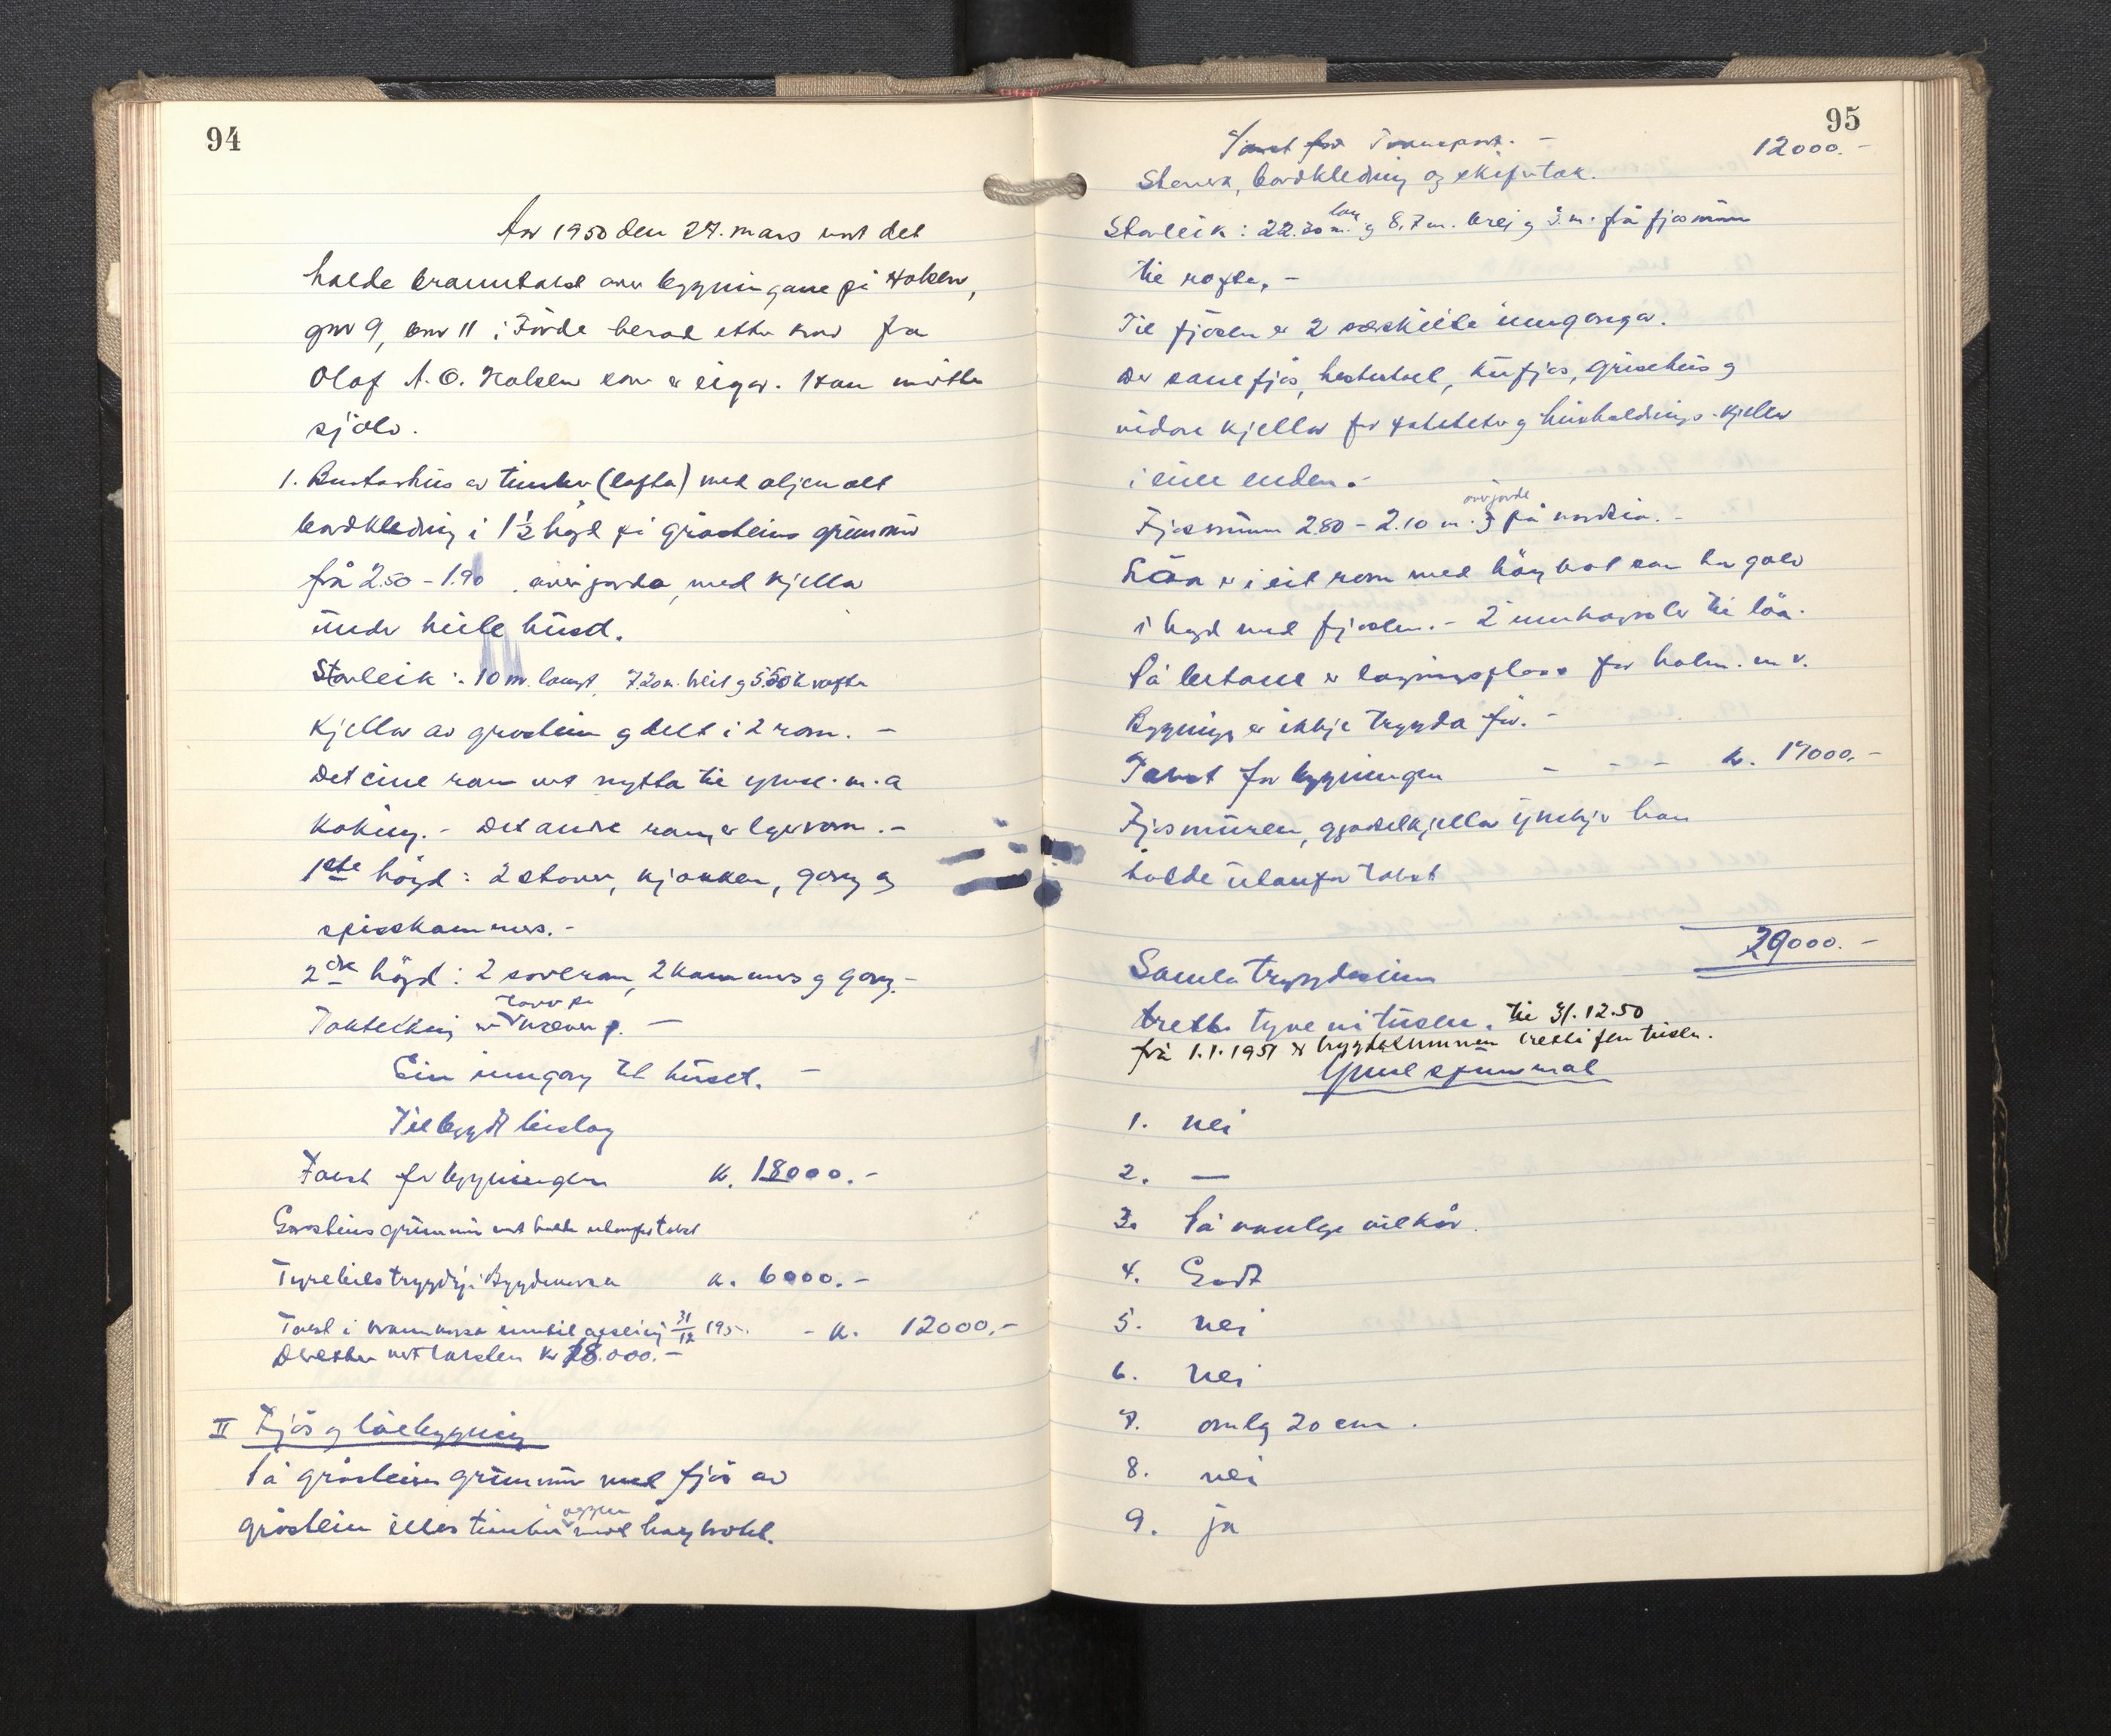 94
Aar 1950 den 27. mars vart det
halde branntakst over bygningane på Halsen,
gnr 9, bnr 11 i Förde herad etter krav fra
Olaf A. O. Halsen som er eigar. Han møtte
sjölv.
1. Bustadhus av timber (lafta) med utvendes
bordkledning i 1½ högd på gråsteins grunnmur
frå 2.50 – 1.90 over jorda, med kjellar
under heile huset.
Storleik: 10 m. langt, 7.20 m. breit og 5.50 til rafta
Kjellar av gråstein og delt i 2 rom. –
Det eine rom vert nytta til ymse m. a
koking. – Det andre rom er lagerrom. –
1ste högd: 2 stover, kjøkken, gang og
spisskammers. –
2dre högd: 2 soverom, 2 kammers og gang. –
Taktekking er never. –
Ein inngang til huset. –
Tilbygdt bislag
Takst for bygningen kr. 18000. –
Gråsteins grunnmur vert halde utanfor takst
Trygding i Bygdakassa kr. 6000. –
Takst i brannkassa inntil 31/12 195 – kr. 12000. –
Deretter vert taksten kr 18.000. –
II Fjös og löebygning
På gråsteins grunnmur med fjös av
gråstein elles timber vegger med höybrot.
95
Takst for Transport. – 12000. –
Stenverk, bordkledning og skifertak.
Storleik: 22.30 m. lang og 8,7 m. brei og 3. m. frå fjösmuren
til rafta. –
Til fjösen er 2 særskilte innganga.
Der sauefjös, hestestall, kufjös, grisehus og
vidare kjellar for poteter og hushaldnings-kjellar
i eine enden. –
Fjösmuren 2.80 – 2.10 m. over jorda på nordsia. –
Löa er i eit rom med höybrot som har golv
i högd med fjösen. – 2 innkøyrsler til löa.
På bestane er lagringsplass for halm m. v.
Bygningen er ikkje trygda för. –
Takst for bygningen – – – kr. 17000. –
Fjösmuren, gjødselkjellar ynskjer han
halde utanfor takst
29000. –
Samla trygdesum
tyve ni tusen. til 31.12.50
frå 1.1.1951 er trygdesummen tretti fem tusen.
Ymse spursmål
1. nei
2. —
3. På vanlege vilkår.
4. Godt
5. nei
6. nei
7. omlag 20 cm.
8. nei
9. ja